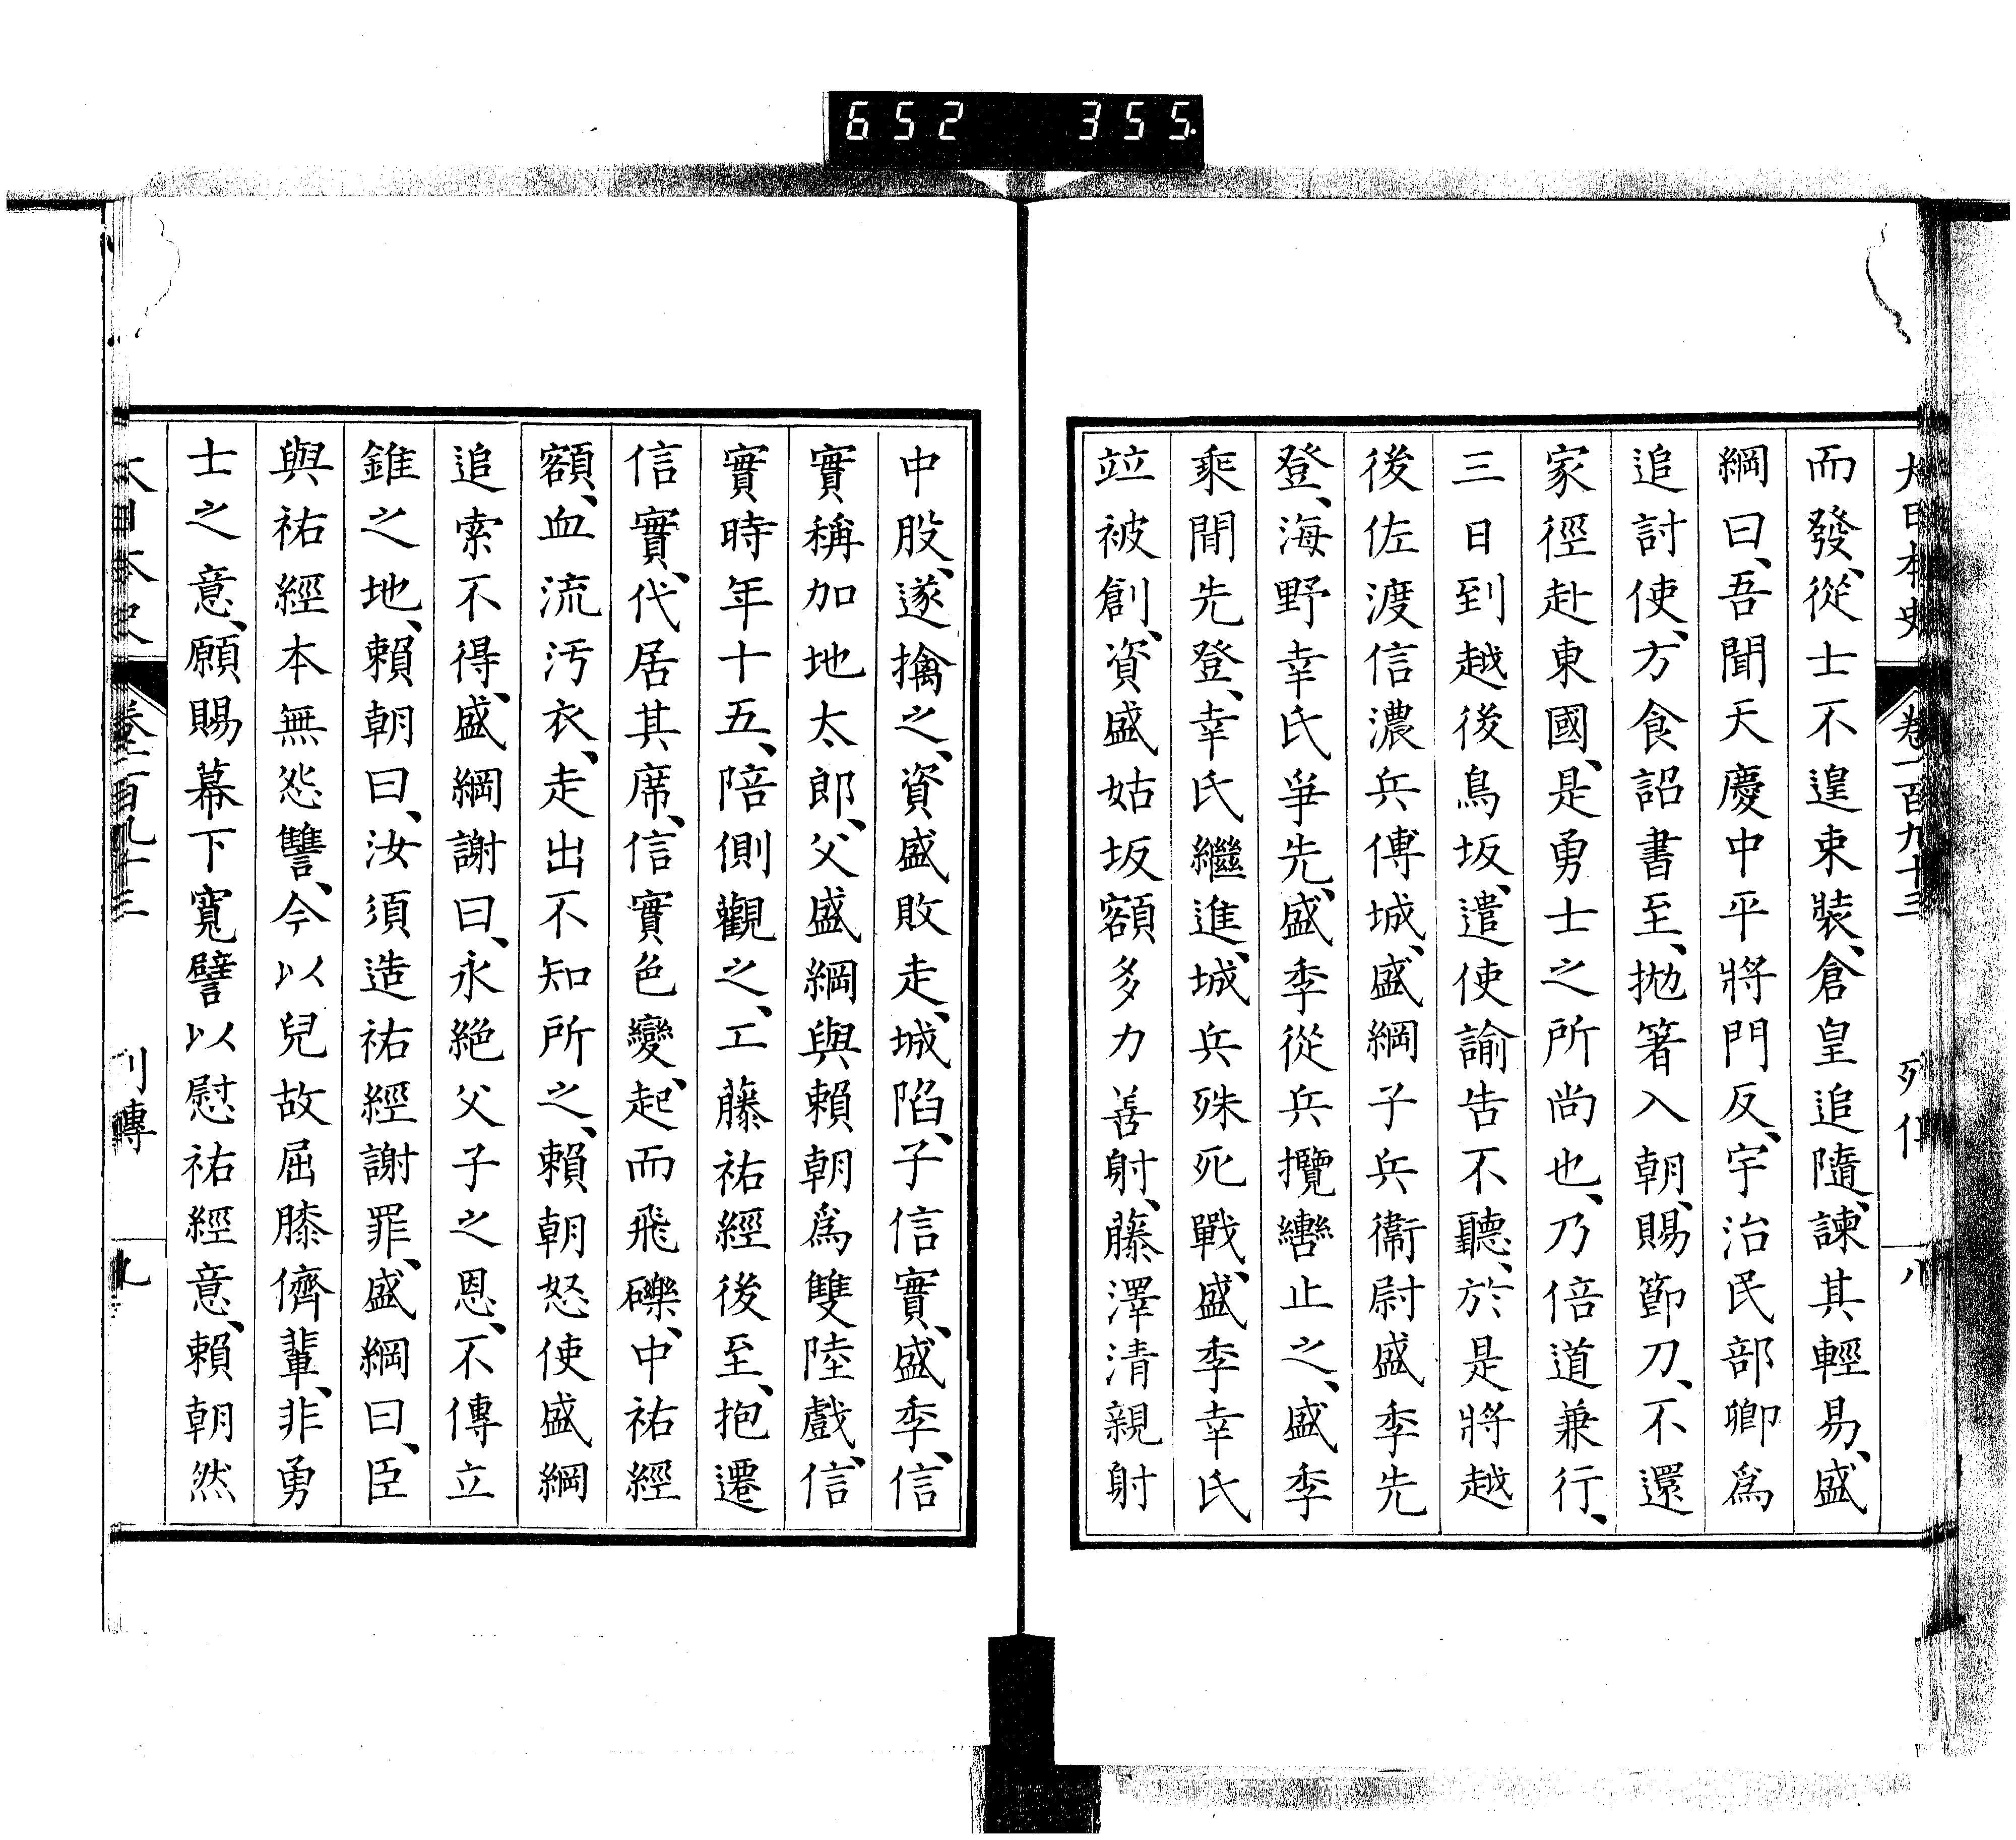 652 355
大日本史 卷一百九十三 列傳 八
而發、從士不遑束裝、倉皇追隨、諫其輕易、盛
綱曰、吾聞天慶中平將門反、宇治民部卿爲
追討使、方食詔書至、拋箸入朝、賜節刀、不還
家徑赴東國、是勇士之所尚也、乃倍道兼行、
三日到越後鳥坂、遣使諭告不聽、於是將越
後佐渡信濃兵傅城、盛綱子兵衞尉盛季先
登、海野幸氏爭先、盛季從兵攬轡止之、盛季
乘間先登、幸氏繼進、城兵殊死戰、盛季幸氏
竝被創、資盛姑坂額多力善射、藤澤清親射
中股、遂擒之、資盛敗走、城陷、子信實、盛季、信
實稱加地太郎、父盛綱與賴朝爲雙陸戲、信
實時年十五、陪側觀之、工藤祐經後至、抱遷
信實、代居其席、信實色變、起而飛礫、中祐經
額、血流汚衣、走出不知所之、賴朝怒使盛綱
追索不得、盛綱謝曰、永絕父子之恩、不傳立
錐之地、賴朝曰、汝須造祐經謝罪、盛綱曰、臣
與祐經本無怨讐、今以兒故屈膝儕輩、非勇
士之意、願賜幕下寬譬以慰祐經意、賴朝然
大日本史 卷一百九十三 列傳 九